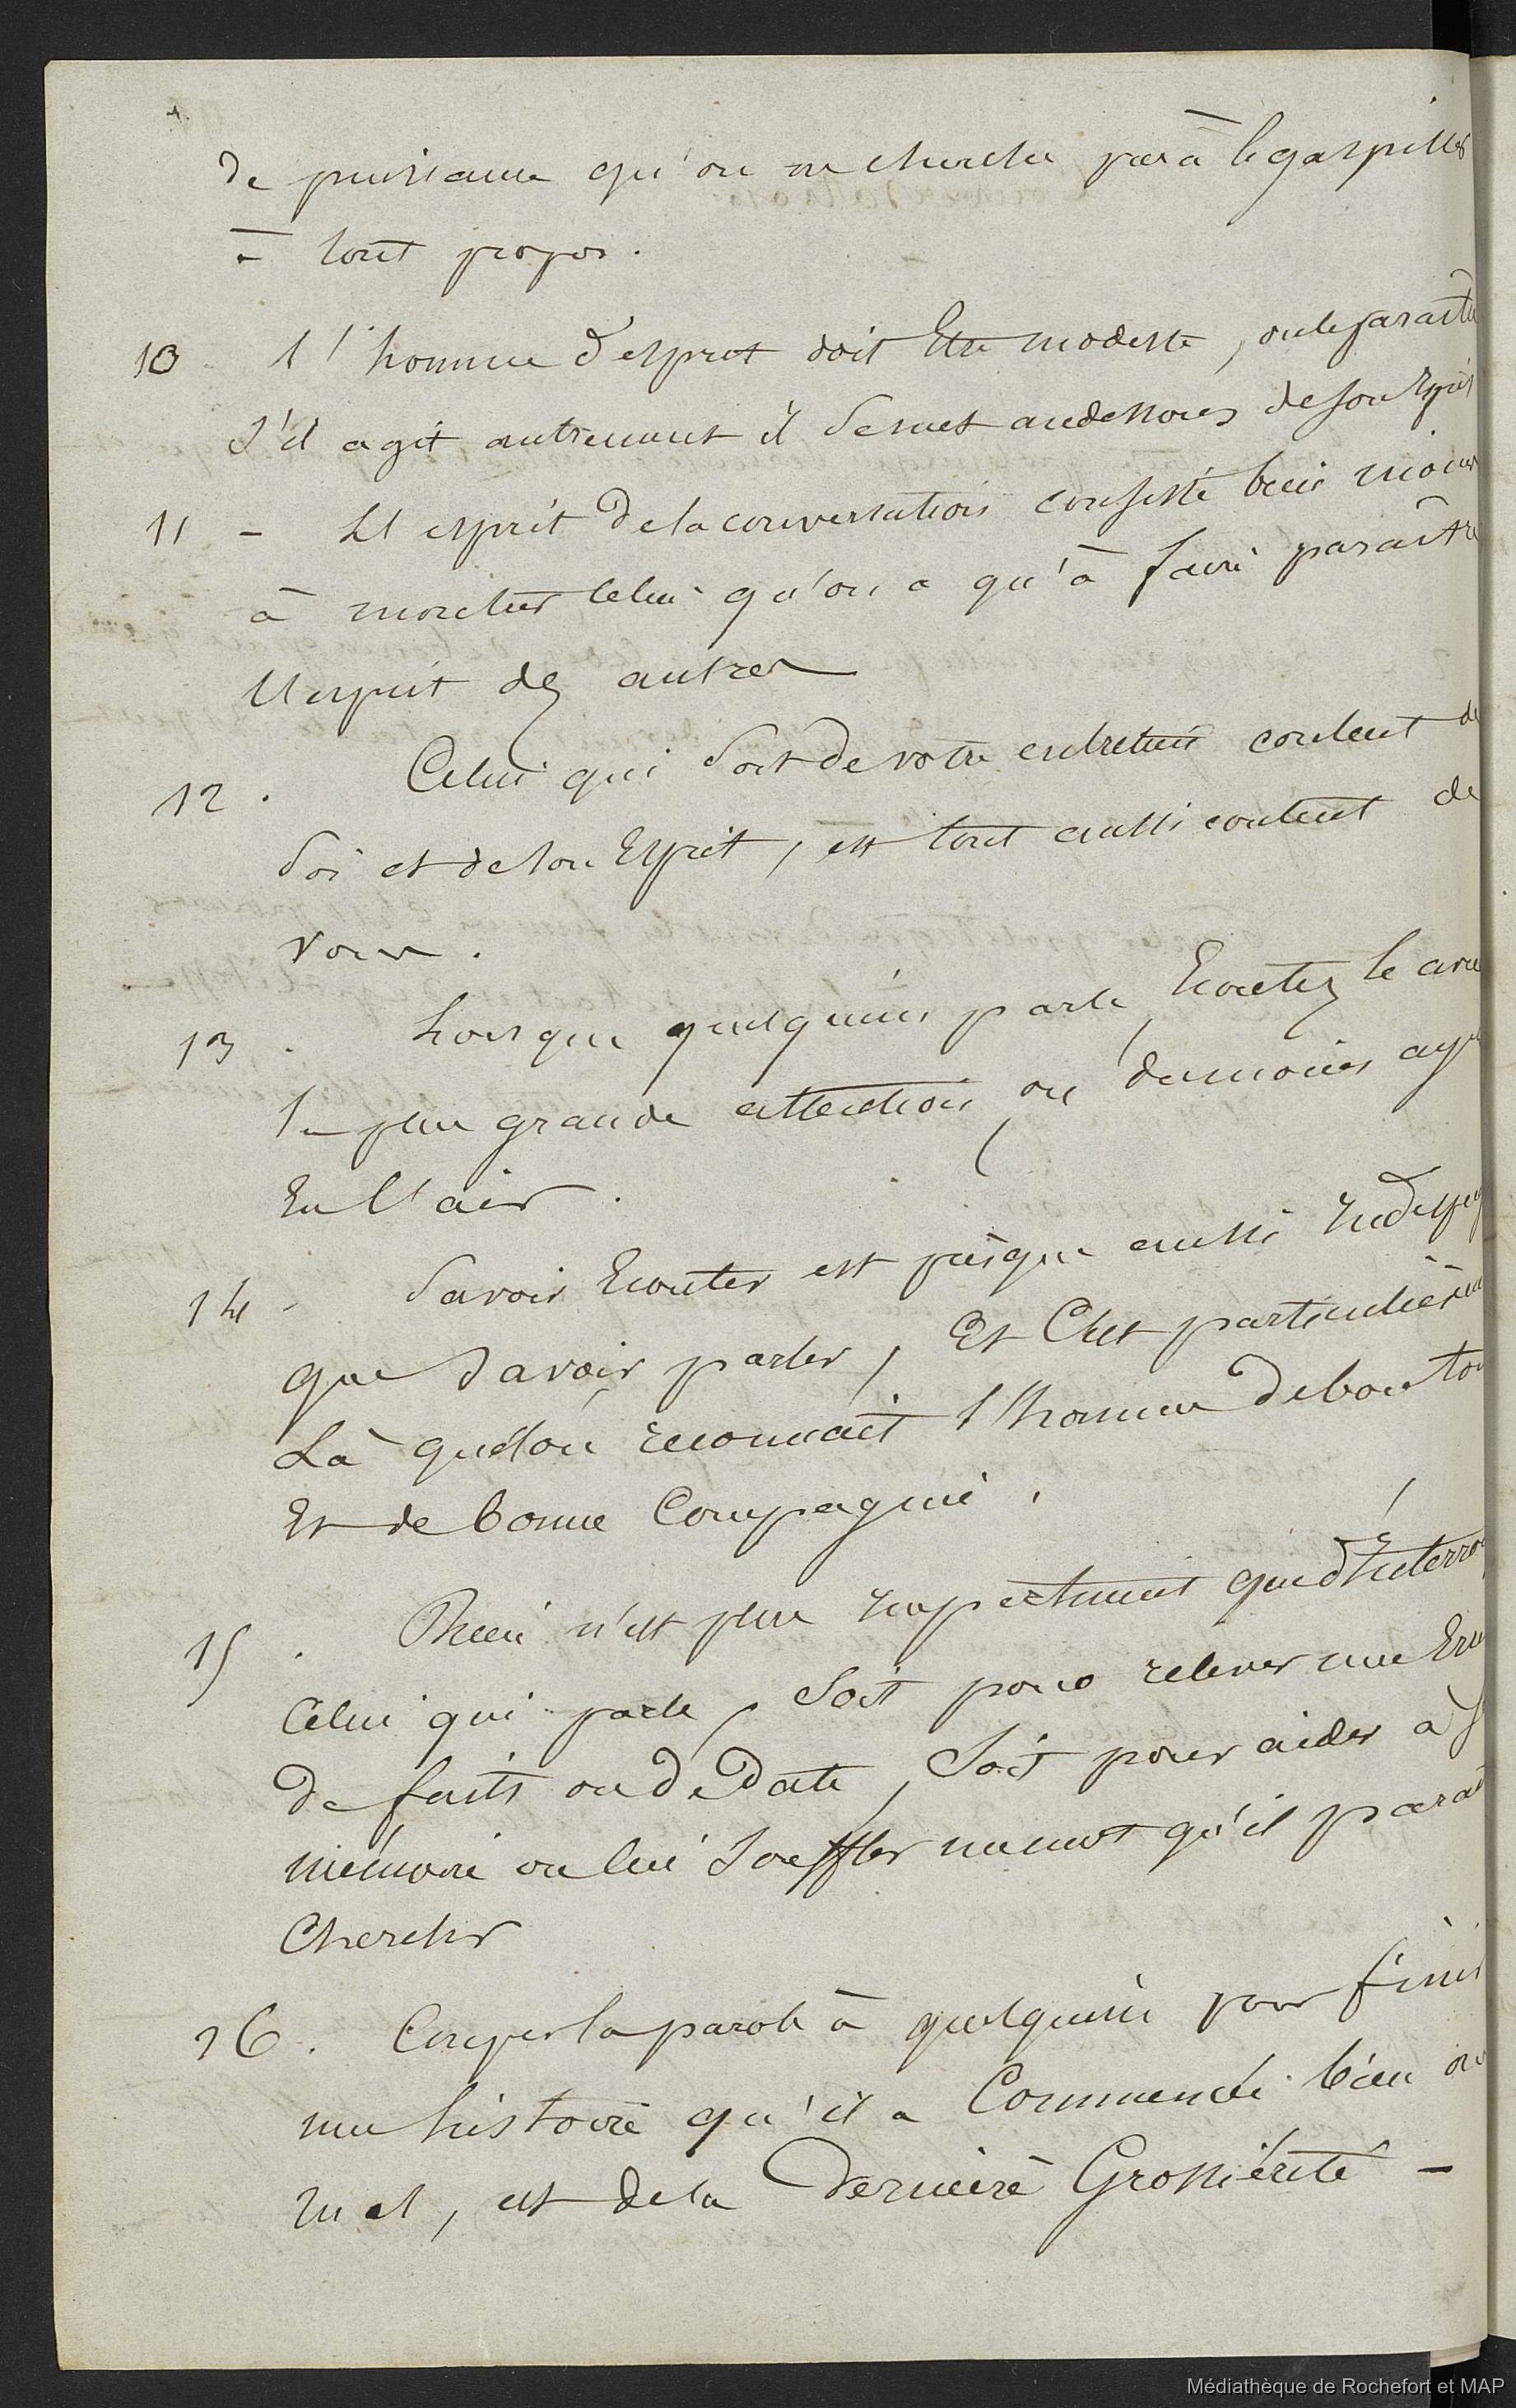 4.
de puissance qu'on ne cherche pas à le gaspiller
à tout propos.
10 l'homme d'esprit doit Etre modeste, ou le paraitre
S'il agit autrement il se met au dessous de son Esprit
11 - L'esprit de la conversation consiste bien moins
à montrer celui qu'on a qu'à faire paraître
l'esprit des autres
12. Celui qui sort de votre entretien content de
soi et de son Esprit, est tout aussi content de
vous.
13. Lorsque quelqu'un parle, Ecoutez le avec
la plus grande attention, ou du moins ayez
En l'air.
14 - Savoir Ecouter est presque aussi
que savoir parler, Et C'est particulièrem
Là que l'on reconnait l'homme de bon ton
Et de bonne Compagnie.
15. Rien n'est plus Impertinent que d'Interro
Celui qui parle, Soit pour relever une
de faits ou de Date, Soit pour aider à
mémoire ou lui Souffler un mot qu'il parait
Chercher
16. Couper la parole à quelqu'un pour finir
une histoire qu'il a Commencé bien ou
mal, est de la Dernière Grossiéreté -
Médiathèque de Rochefort et MAP